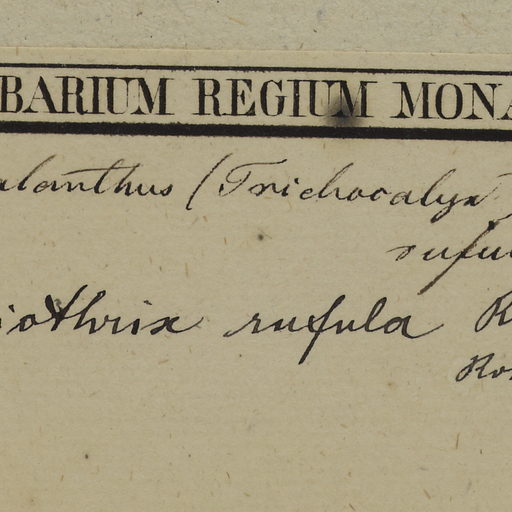 BARIUM REGIUM MONA
alanthus (Trichocalyx)
rufu
iothrix rufula R
Ros